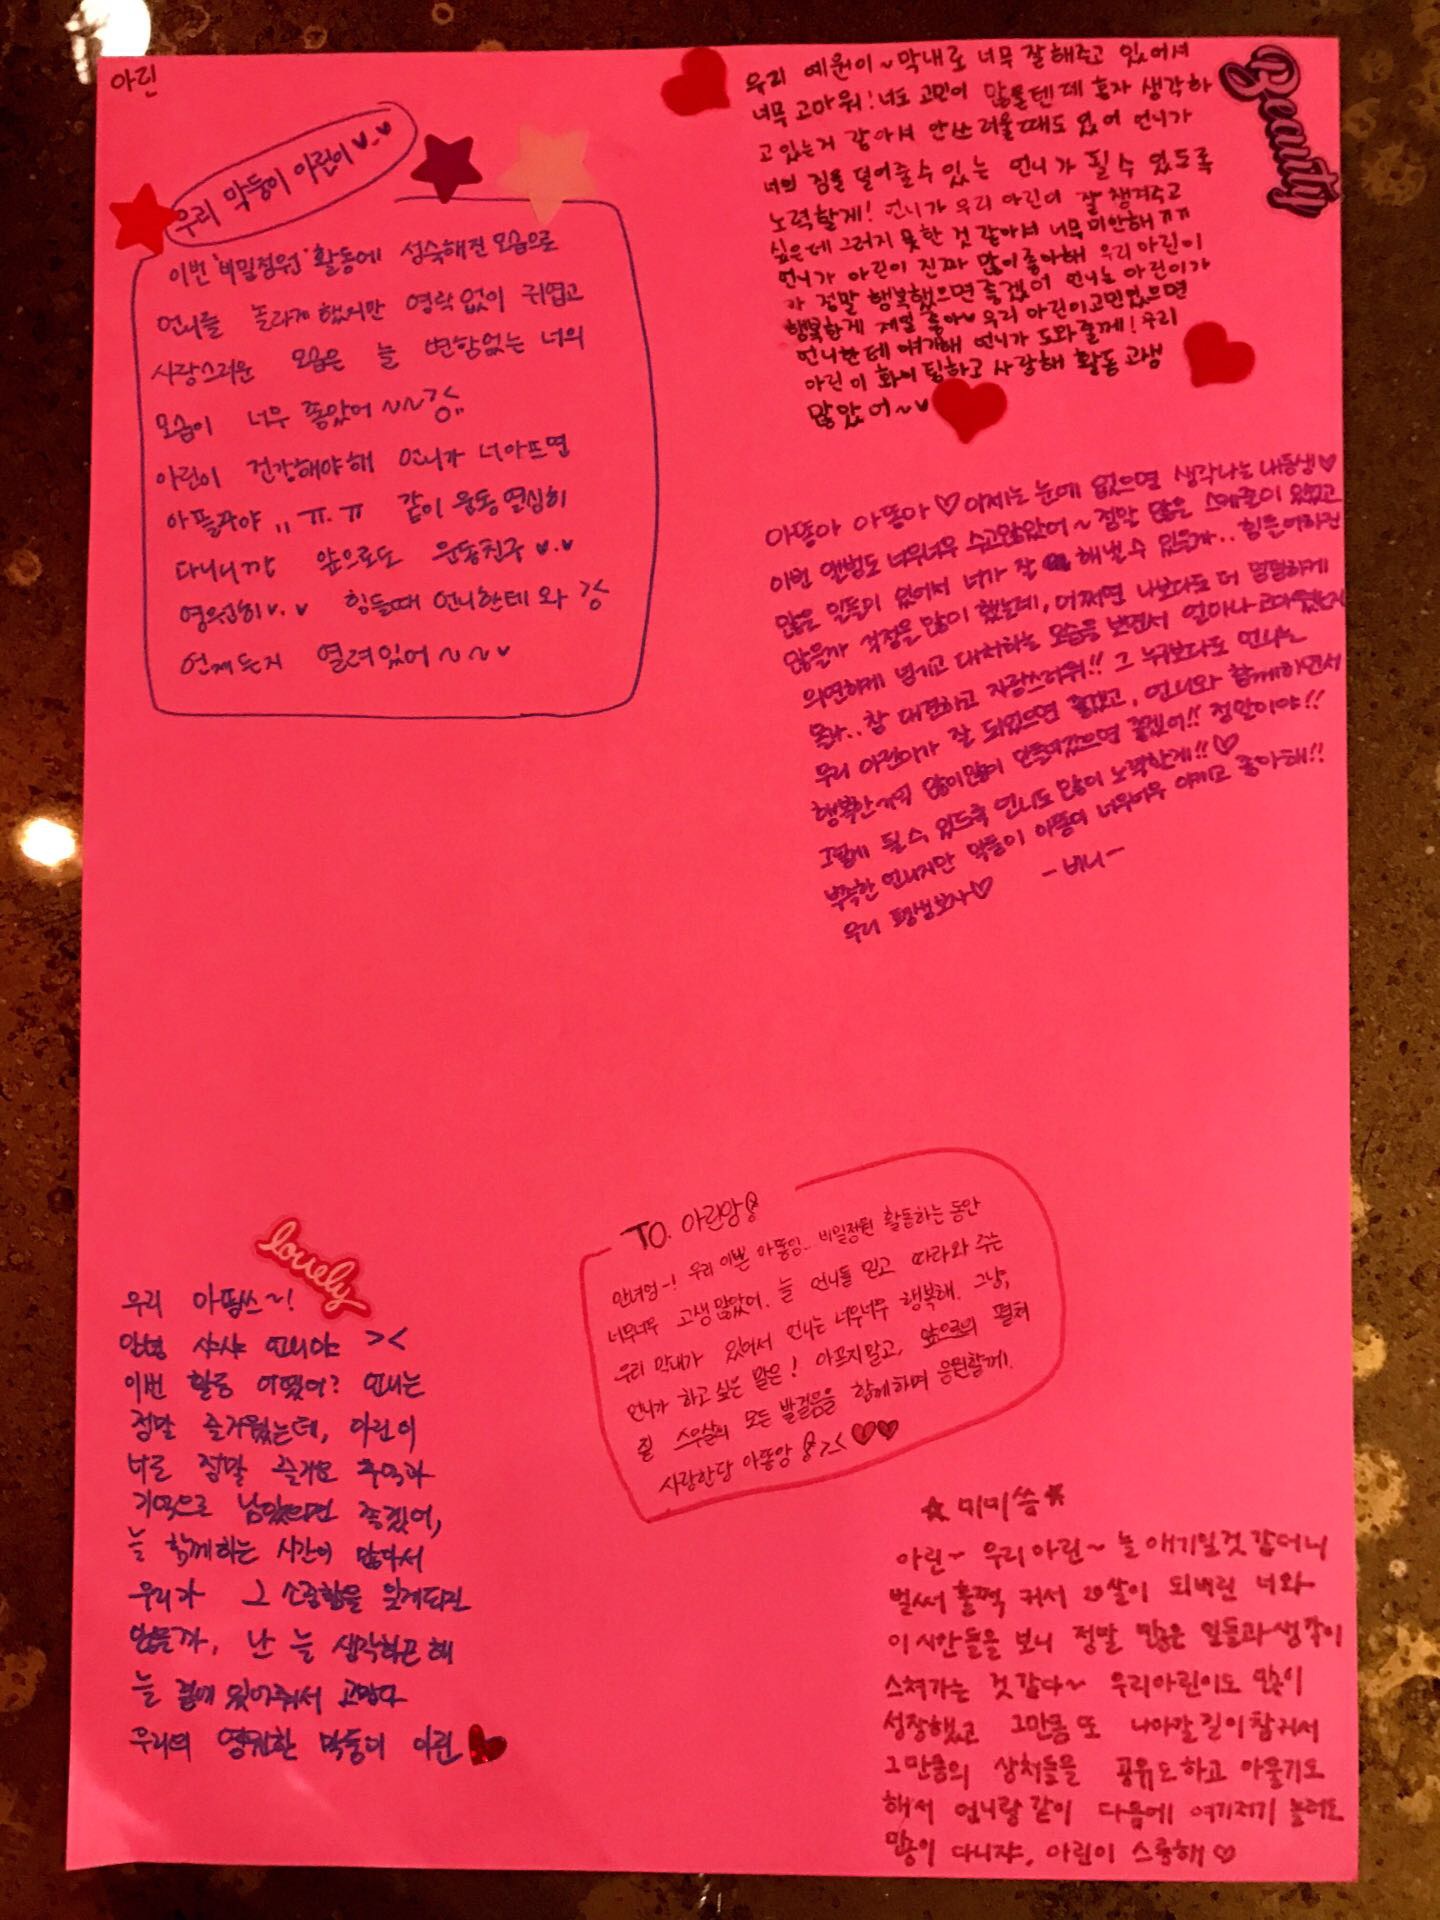 아린
우리 막둥이 아린이♥.♥
이번 '비밀정원' 활동에 성숙해진 모습으로
언니들 놀라게했지만 영락없이 귀엽고
사랑스러운 모습은 늘 변함없는 너의
모습이 너무 좋았어~~
아린이 건강해야해 언니가 너아프면
아플꺼야,, ㅠ.ㅠ 같이 운동 열심히
다니니깐 앞으로도 운동친구♥.♥
영원히♥.♥ 힘들때 언니한테 와
언제든지 열려있어~~♥
Beauty
우리 예원이~막내로 너무 잘해주고 있어서
너무 고마워! 너도 고민이 많을텐데 혼자 생각하
고있는거 같아서 안쓰러울때도 있어 언니가
너의 짐을 덜어줄수 있는 언니가 될 수 있도록
노력할게! 언니가 우리 아린이 잘 챙겨주고
싶은데 그러지 못한 것 같아서 너무미안해ㅠㅠ
언니가 아린이 진짜 많이좋아해 우리아린이
가 정말 행복했으면 좋겠어 언니는 아린이가
행복한게 제일 좋아♥우리 아린이고민있으면
언니한테 얘기해 언니가 도와줄께! 우리
아린이 화이팅하고 사랑해 활동 고생
많았어~♥
아똥아 아똥아♡이제는 눈에 없으면 생각나는 내동생♡
이번 앨범도 너무너무 수고많았어~ 정말 많은 스케줄이 있었고
많은 일들이 있어서 너가 잘 해낼수 있을까.. 힘들어하진
않을까 걱정을 많이 했는데, 어쩌면 나보다도 더 덤덤하게
의연하게 넘기고 대처하는 모습을 보면서 얼마나 고마웠는지
몰라.. 참 대견하고 자랑스러워!! 그 누구보다도 언니는
우리 아린이가 잘 되었으면 좋겠고, 언니와 함께하면서
행복한기억 많이많이 만들어갔으면 좋겠어!! 정말이야!!
그렇게 될 수 있도록 언니도 많이 노력할게!!♡
부족한 언니지만 막둥이 아똥이 너무너무 아끼고 좋아해!!
우리 평생보자♡ -비니-
TO. 아린앙
안녀엉~! 우리 이쁜 아똥잉.. 비밀정원 활동하는 동안
너무너무 고생많았어. 늘 언니들 믿고 따라와 주는
우리 막내가 있어서 언니는 너무너무 행복해. 그냥,
언니가 하고싶은 말은! 아프지말고, 앞으로의 펼쳐
질 수의 모든 발걸음을 함께하며 응원할게.
사랑한당 아똥앙 ><♥♥
lovely
우리 아띰쓰~!
안녕 샤샤 언니야 ><
이번 활동 어땠어? 언니는
정말 즐거웠는데, 아린이
너도 정말 즐거운 추억과
기억으로 남았으면 좋겠어,
늘 함께하는 시간이 많아서
우리가 그 소중함을 잊게되진
않을까, 난 늘 생각하곤 해
늘 곁에 있어줘서 고맙다
우리의 영원한 막둥이 아린
☆미미쓺☆
아린~ 우리아린~ 늘 애기일것 같더니
벌써 훌쩍 커서 20살이 되버린 너와
이 시안들을 보니 정말 많은 일들과 생각이
스쳐가는 것 같다~ 우리아린이도 많이
성장했고 그만큼 또 나아갈 길이 참커서
그만큼의 상처들을 공유도하고 아물기도
해서 언니랑 같이 다음에 여기저기 놀러도
많이 다니쟈, 아린이 스릉해♡